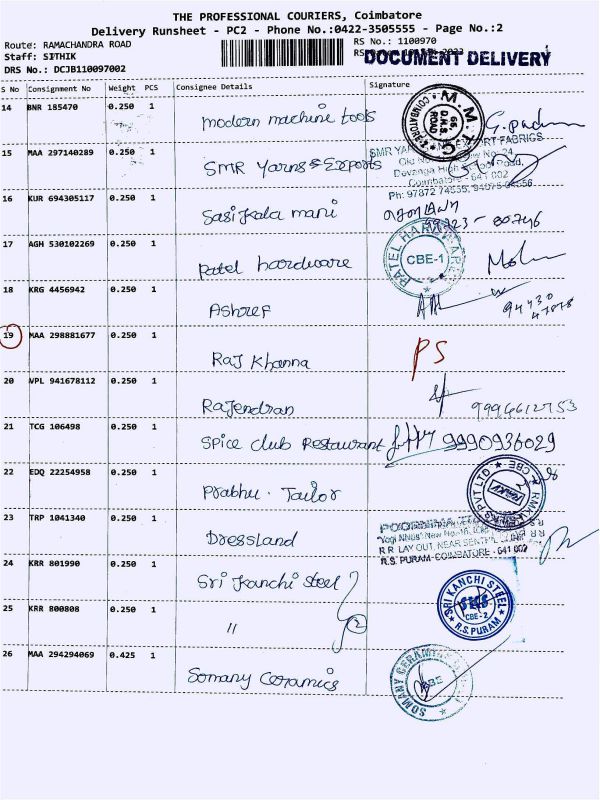 THE PROFESSIONAL COURIERS, Coimbatore
Delivery Runsheet - PC2 - Phone No.:0422-3505555 - Page No.:2
Route: RAMACHANDRA ROAD
RS No.: 1100970
Staff: SITHIK
DOCUMENT DELIVERY
DRS No.: DCJB110097002
S No Consignment No Weight PCS Consignee Details Signature
14 BNR 185470 0.250 1 modern machine tools
M. M. T. C COIMBATORE 66, D.H.S. ROAD
G. Padma
15 MAA 297140289 0.250 1 SMR Yarns & Exports
SMR YARNS EXPORT FABRICS
Devanga High School Road,
Coimbatore - 641 002
Ph: 97872 74555,
16 KUR 694305117 0.250 1 Sasikala mani
99723 - 80746
17 AGH 530102269 0.250 1 Patel hardware
PATEL HARDWARE CBE-1
18 KRG 4456942 0.250 1 Ashref
94430
47878
19 MAA 298881677 0.250 1 Raj Khanna PS
20 VPL 941678112 0.250 1 Rajendran 9994612753
21 TCG 106498 0.250 1 Spice club Restaurant 9990936029
22 EDQ 22254958 0.250 1 Prabhu. Tailor
PVT LTD CBE RMKV
23 TRP 1041340 0.250 1 Dressland
R.R LAY OUT, NEAR
R.S. PURAM-COIMBATORE - 641 002
24 KRR 801990 0.250 1 Sri Kanchi Steel
SRI KANCHI STEEL SKS CBE-2 R.S.PURAM
25 KRR 800808 0.250 1 " 2
26 MAA 294294069 0.425 1 Somany Ceramics
SOMANY CERAMICS CBE